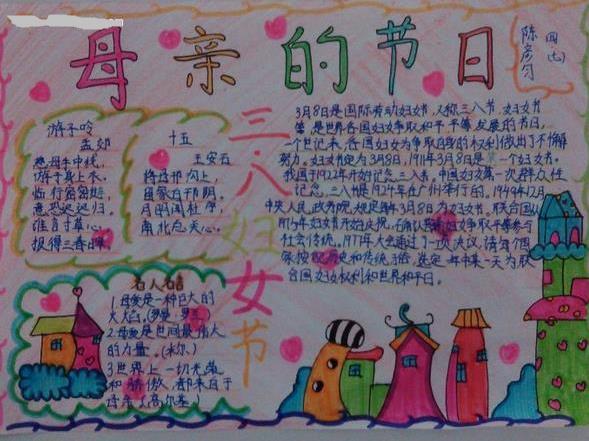 母亲的节日
四(七)
陈彦匀
三·八妇女节
游子吟
孟郊
慈母手中线,
游子身上衣。
临行密密缝,
意恐迟迟归。
谁言寸草心,
报得三春晖。
十五
王安石
将母邗沟上,
留家白邗阴。
月明闻杜宇,
南北总关心。
3月8日是国际劳动妇女节,又称三八节,妇女节
等,是世界各国妇女争取和平、平等、发展的节日,
一个世纪来,各国妇女为争取自身的权利做出了不懈
努力。妇女节定为3月8日,1911年3月8日是第一个妇女节。
我国于1922年开始纪念三八节。中国妇女第一次群众性
纪念三八节是1924年在广州举行的。1949年12月
中央人民政务院规定每年3月8日为妇女节。联合国从
1975年妇女节开始庆祝,
社会传统。1977年大会通过了一项决议,请每个国
家按照历史和传统习俗,选定一年中某一天为联
合国妇女权利和世界和平日。
名人名言
1.母爱是一种巨大的
火焰。(罗曼·罗兰)
2.母爱是世间最伟大
的力量。(米尔)
3世界上一切光荣
和骄傲,都来自于
母亲。(高尔基)